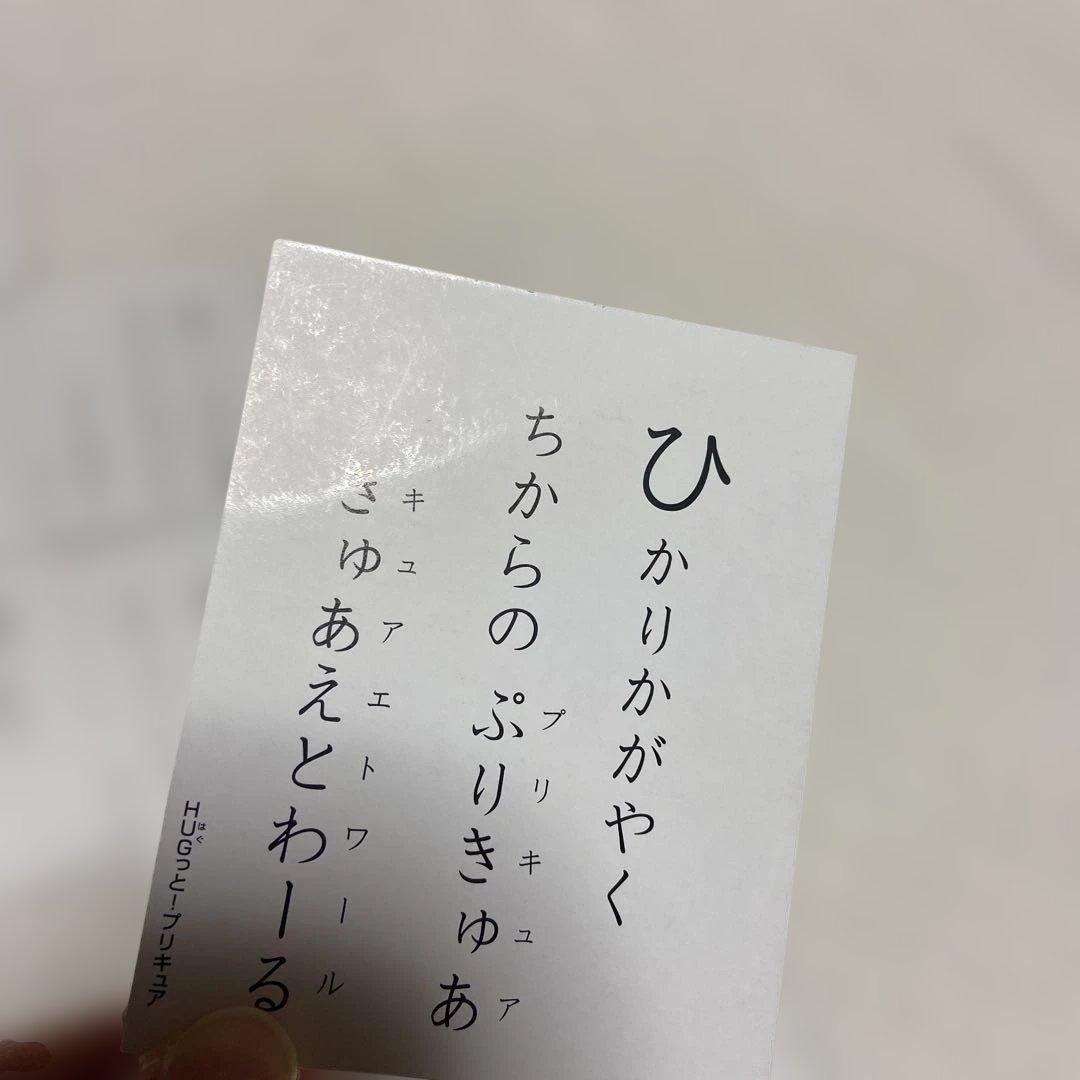 ひかりかがやく
ちからの ぷりきゅあ
プリキュア
きゅあえとわーる
キュアエトワール
HUGっと!プリキュア
はぐ